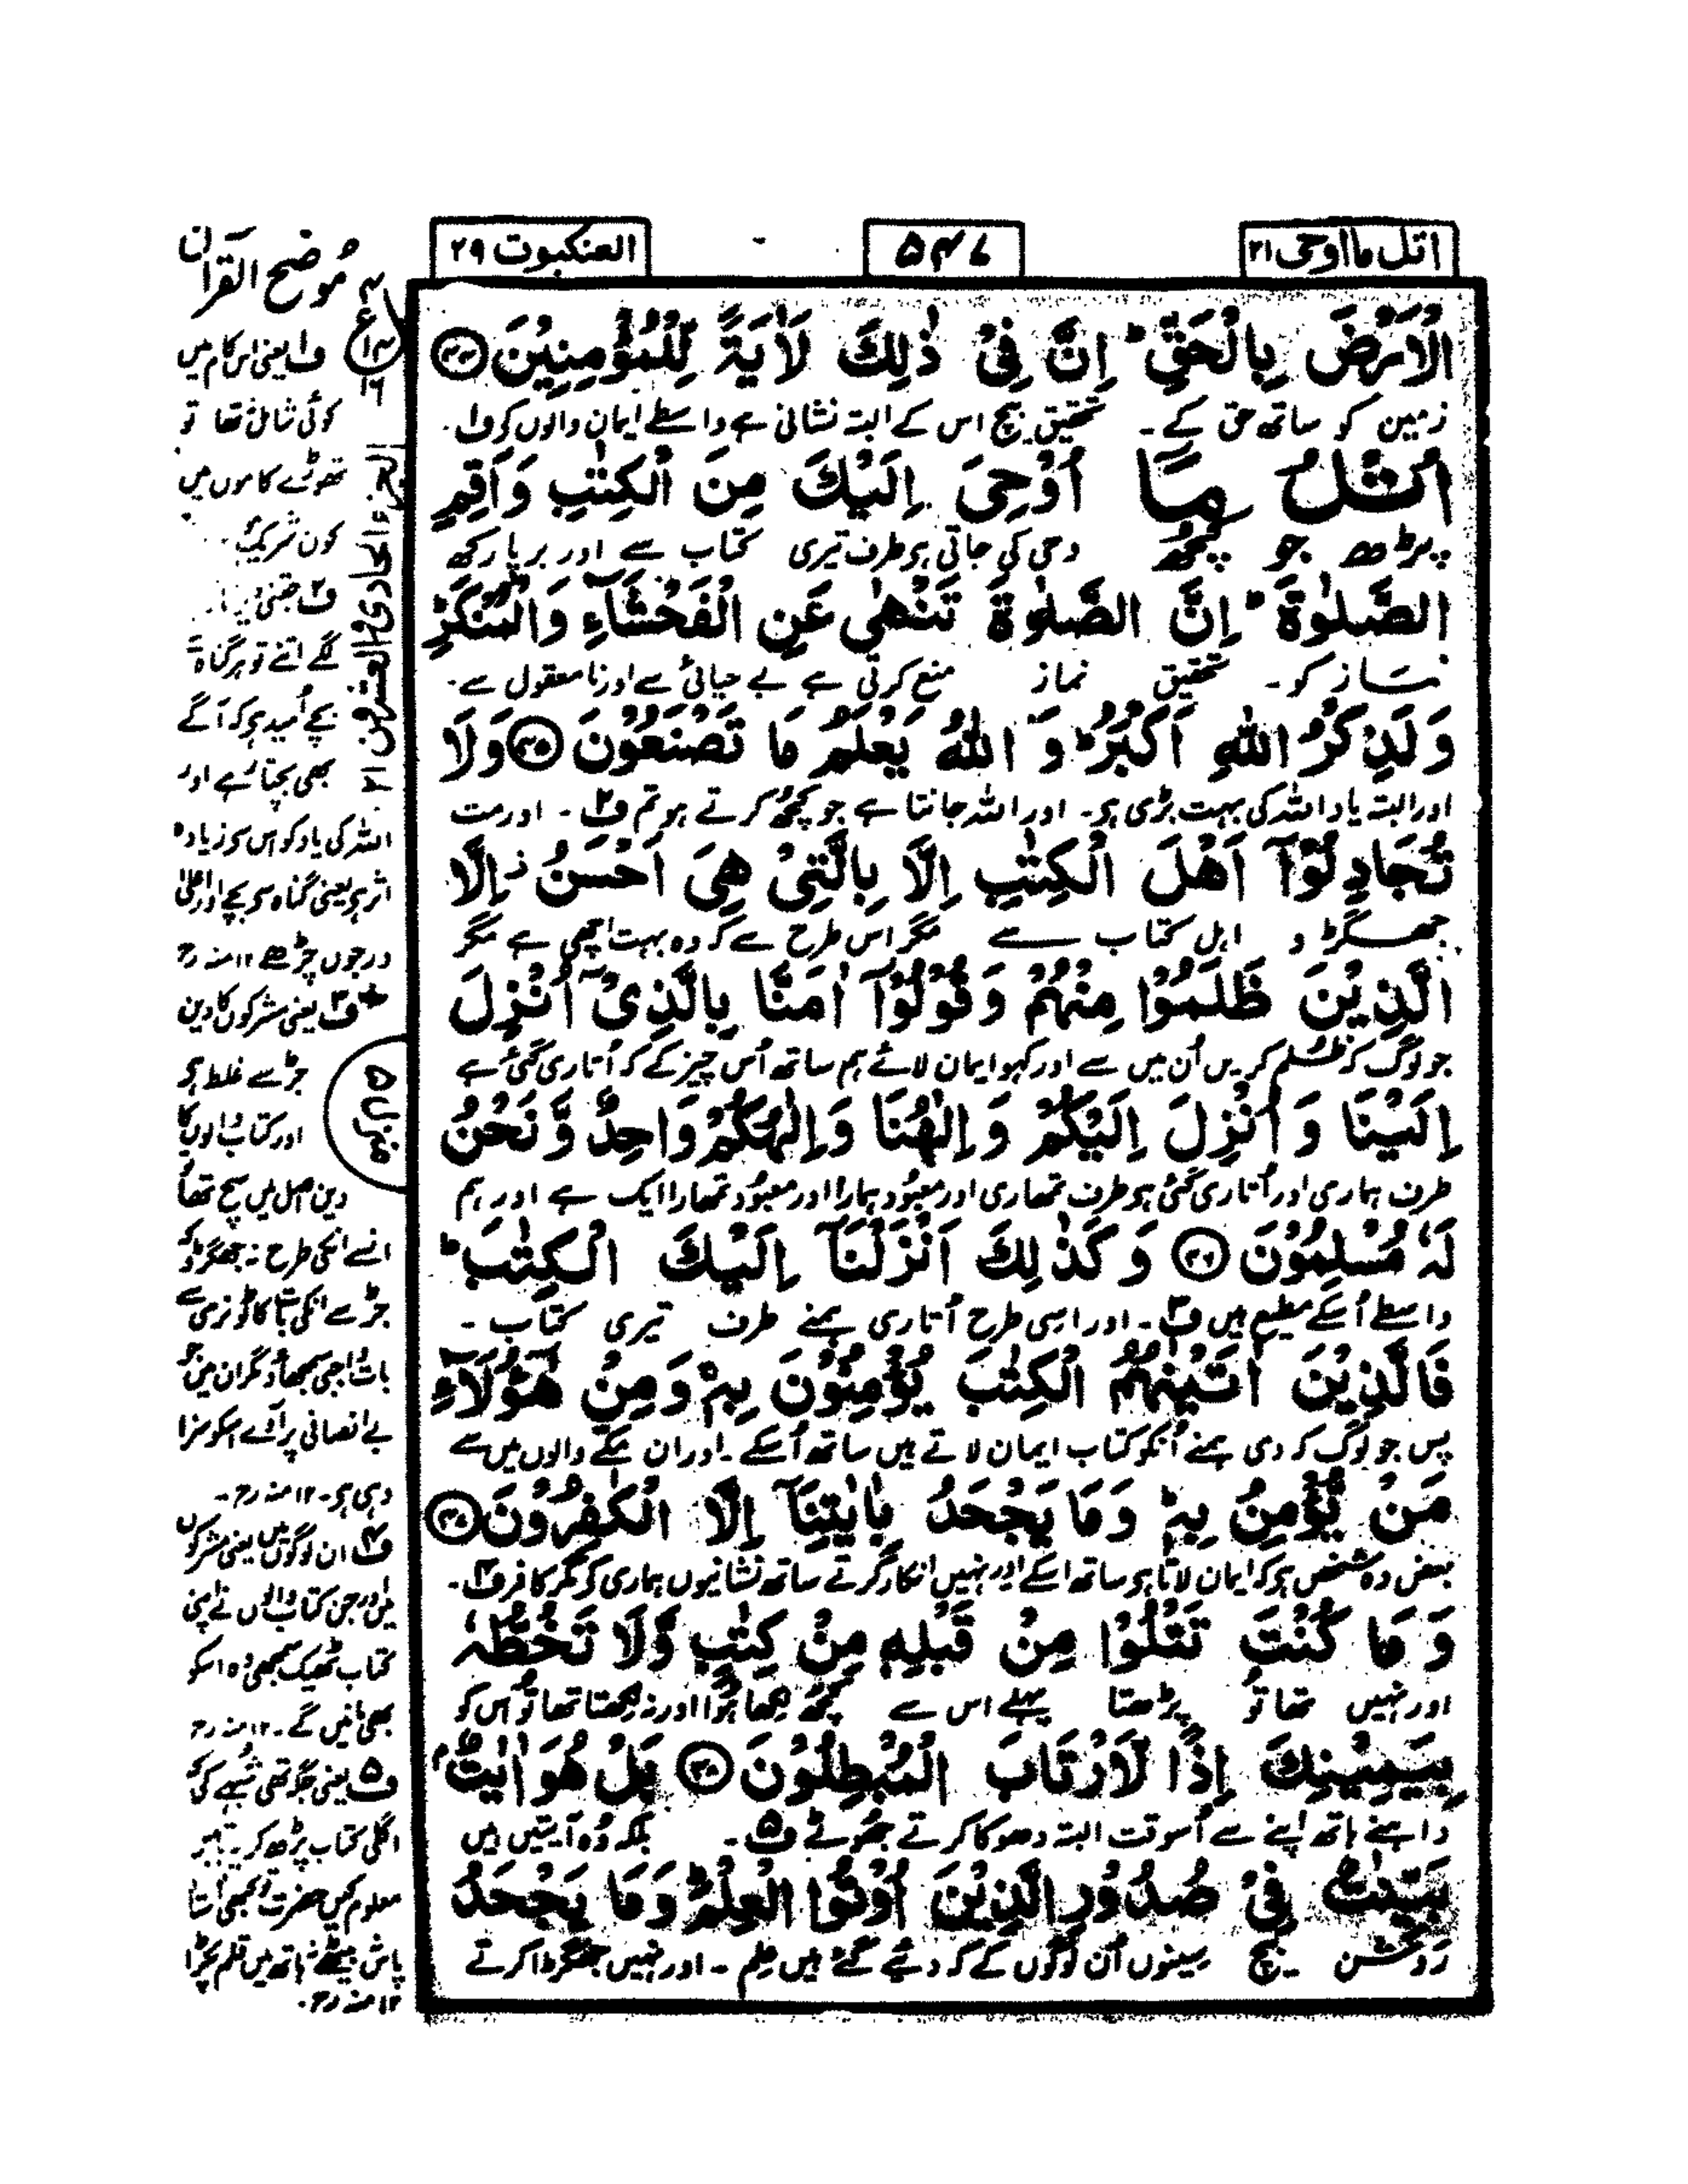 اتل مااوحی ۲۱
۵۴۷
العنکبوت ۲۹
الْاَرْضَ بِالْحَقِّ ؕ اِنَّ فِیْ ذٰلِكَ لَاٰیَةً لِّلْمُؤْمِنِیْنَ ﴿۴۴﴾
زمین کو ساتھ حق کے۔ تحقیق بیچ اس کے البتہ نشانی ہے واسطے ایمان والوں کو ف۱۔
اُتْلُ مَاۤ اُوْحِیَ اِلَیْكَ مِنَ الْكِتٰبِ وَاَقِمِ
پڑھ جو کچھ وحی کی جاتی ہو طرف تیری کتاب سے اور برپا رکھ
الصَّلٰوةَ ؕ اِنَّ الصَّلٰوةَ تَنْهٰی عَنِ الْفَحْشَآءِ وَالْمُنْكَرِ ؕ
نماز کو۔ تحقیق نماز منع کرتی ہے بے حیائی سے اور نامعقول سے۔
وَ لَذِكْرُ اللّٰهِ اَكْبَرُ ؕ وَ اللّٰهُ یَعْلَمُ مَا تَصْنَعُوْنَ ﴿۴۵﴾ وَلَا
اور البتہ یاد اللہ کی بہت بڑی ہو۔ اور اللہ جانتا ہے جو کچھ کرتے ہو تم ف۲۔ اور مت
تُجَادِلُوْۤا اَهْلَ الْكِتٰبِ اِلَّا بِالَّتِیْ هِیَ اَحْسَنُ ۖ اِلَّا
جھگڑو اہل کتاب سے مگر اس طرح سے کہ وہ بہت اچھی ہے مگر
الَّذِیْنَ ظَلَمُوْا مِنْهُمْ وَقُوْلُوْۤا اٰمَنَّا بِالَّذِیْۤ اُنْزِلَ
جو لوگ کہ ظلم کریں اُن میں سے اور کہو ایمان لائے ہم ساتھ اُس چیز کے کہ اُتاری گئی ہے
اِلَیْنَا وَ اُنْزِلَ اِلَیْكُمْ وَ اِلٰهُنَا وَاِلٰهُكُمْ وَاحِدٌ وَّ نَحْنُ
طرف ہماری اور اُتاری گئی ہو طرف تمھاری اور معبُود ہمارا اور معبُود تمھارا ایک ہے اور ہم
لَهٗ مُسْلِمُوْنَ ﴿۴۶﴾ وَ كَذٰلِكَ اَنْزَلْنَاۤ اِلَیْكَ الْكِتٰبَ ؕ
واسطے اُسکے مطیع ہیں ف۳۔ اور اسی طرح اُتاری ہمنے طرف تیری کتاب۔
فَالَّذِیْنَ اٰتَیْنٰهُمُ الْكِتٰبَ یُؤْمِنُوْنَ بِهٖ ۚ وَمِنْ هٰۤؤُلَآءِ
پس جو لوگ کہ دی ہمنے اُنکو کتاب ایمان لاتے ہیں ساتھ اُسکے۔ اور ان مکے والوں میں سے
مَنْ یُّؤْمِنُ بِهٖ ؕ وَمَا یَجْحَدُ بِاٰیٰتِنَاۤ اِلَّا الْكٰفِرُوْنَ ﴿۴۷﴾
بعض وہ شخص ہو کہ ایمان لاتا ہو ساتھ اسکے اور نہیں انکار کرتے ساتھ نشانیوں ہماری کو مگر کافر ف۴۔
وَ مَا كُنْتَ تَتْلُوْا مِنْ قَبْلِهٖ مِنْ كِتٰبٍ وَّلَا تَخُطُّهٗ
اور نہیں تھا تو پڑھتا پہلے اس سے کچھ لکھا ہُوا اور نہ لکھتا تھا تُو اُس کو
بِیَمِیْنِكَ اِذًا لَّارْتَابَ الْمُبْطِلُوْنَ ﴿۴۸﴾ بَلْ هُوَ اٰیٰتٌۢ
داہنے ہاتھ اپنے سے اُسوقت البتہ دھوکا کرتے جھُوٹے ف۵۔ بلکہ وُہ آیتیں ہیں
بَیِّنٰتٌ فِیْ صُدُوْرِ الَّذِیْنَ اُوْتُوا الْعِلْمَ ؕ وَمَا یَجْحَدُ
روشن بیچ سینوں اُن لوگوں کے کہ دیئے گئے ہیں علم۔ اور نہیں جھگڑا کرتے
مُوضح القرآن
ف۱ یعنی اس کام میں
کوئی شامل نتھا تو
تھوڑے کاموں میں
کون شریک
ف۲ جتنی دیر
لگے اتنے تو ہر گناہ سے
بچے اُمید ہو کہ آگے
بھی بچتا رہے اور
اللہ کی یاد کو اس سو زیادہ
اثر ہو یعنی گناہ سو بچے اور اعلیٰ
درجوں چڑھے ۱۲منہ رح
ف۳ یعنی مشرکوں کا دین
جڑ سے غلط ہو
اور کتاب والوں کا
دین اصل میں سچ تھا تو
انسے انکی طرح نہ جھگڑو کہ
جڑ سے انکی بات کاٹو نرمی سے
بات واجبی سمجھاؤ مگر ان میں جو
بے انصافی پر آوے اسکو سزا
وہی ہو۔ ۱۲منہ رح۔
ف۴ ان لوگوں میں یعنی مشرکوں
میں اور جن کتاب والوں نے اپنی
کتاب ٹھیک سمجھی وہ اسکو
بھی مانیں گے۔ ۱۲منہ رح
ف۵ یعنی جگہ تھی شبہے کی
اگلی کتاب پڑھ کر یہ باتیں
معلوم کیں حضرت تو کبھی اُستاد
پاس بیٹھے نہ ہاتھ میں قلم پکڑا
۱۲منہ رح۔
الجزء الحادی والعشرون ۲۱
منزل ۵